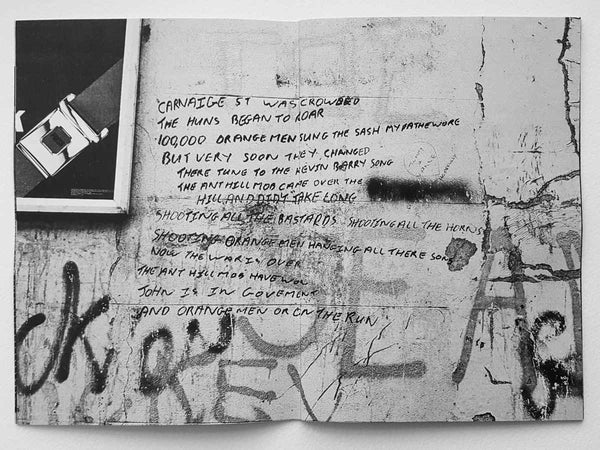 CARNAIGE ST WAS CROWDED
THE HUNS BEGAN TO ROAR
100,000 ORANGE MEN SUNG THE SASH MY FATHE WORE
BUT VERY SOON THEY CHANGED
THERE TUNE TO THE KEVIN BARRY SONG
THE ANT HILL MOB CAME OVER THE
HILL AND DIDT TAKE LONG
SHOOTING ALL THE BASTARDS SHOOTING ALL THE HORNS
SHOOTING ORANGE MEN HANGING ALL THERE SONS
NOW THE WAR IS OVER
THE ANT HILL MOB HAVE WON
JOHN IS IN GOVEMENT
AND ORANGE MEN OR ON THE RUN